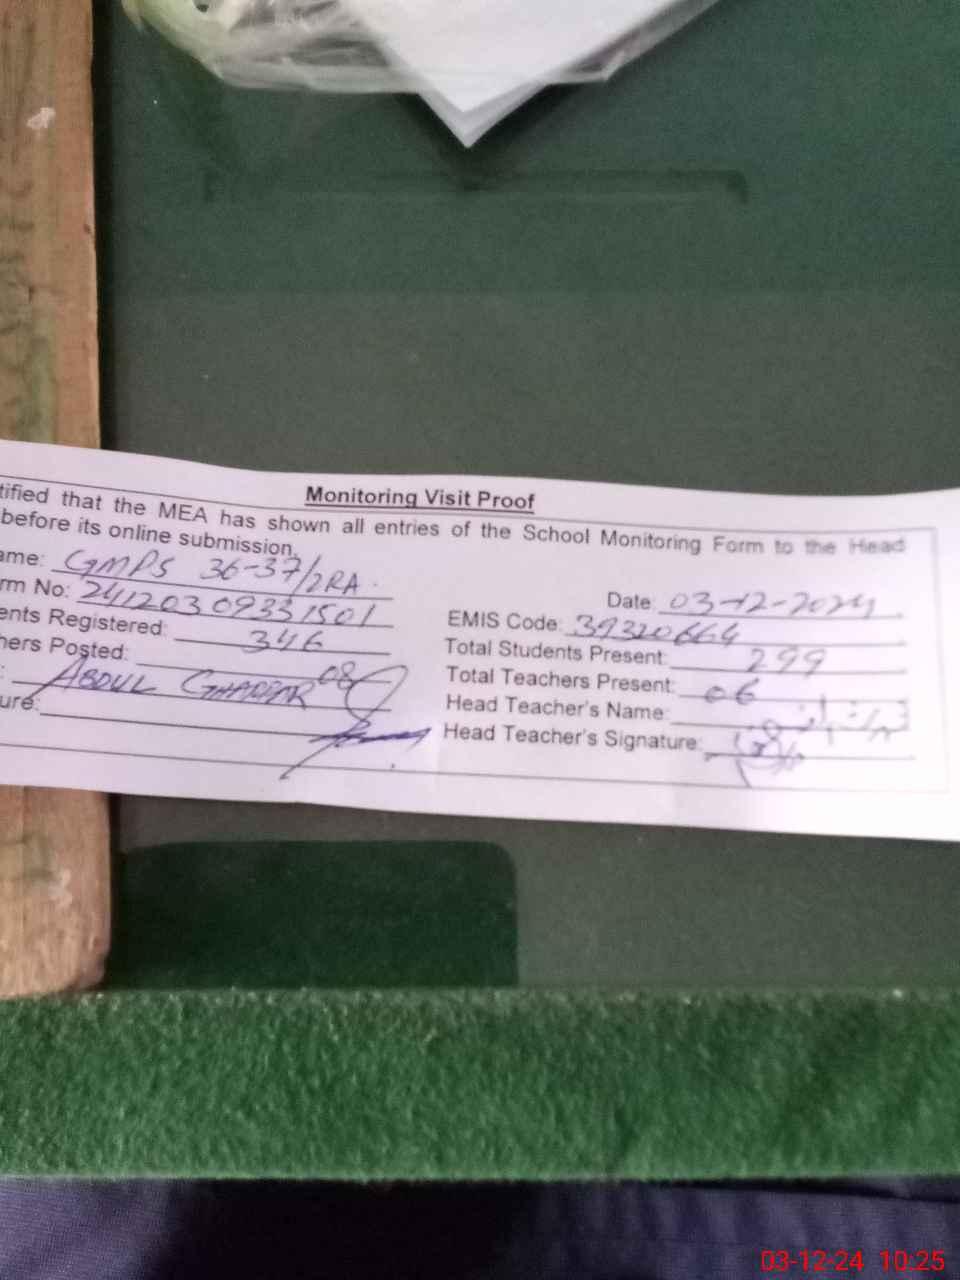 Monitoring Visit Proof
tified that the MEA has shown all entries of the School Monitoring Form to the Head
before its online submission.
ame: GMPS 36-37/2RA
Date: 03-12-2024
rm No: 24120309331501
EMIS Code: 39320664
ents Registered: 346
Total Students Present: 299
hers Posted: 08
Total Teachers Present: 06
: ABDUL GHAFFAR
Head Teacher's Name:
ure:
Head Teacher's Signature:
03-12-24 10:25